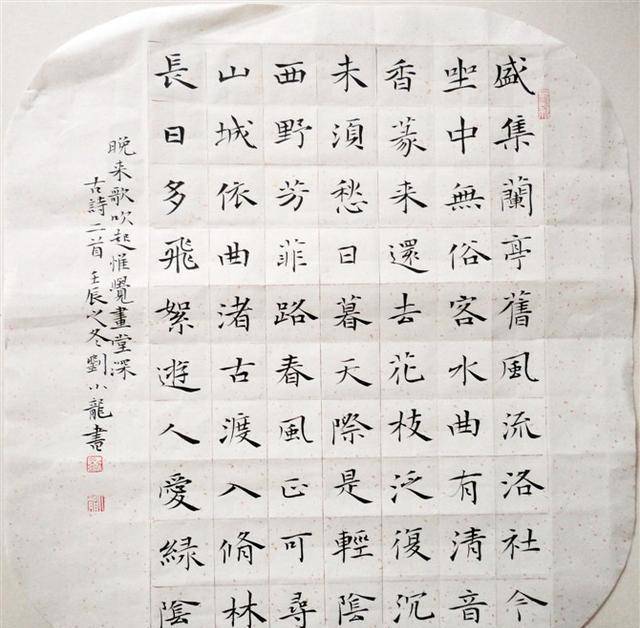 盛集蘭亭舊風流洛社今
坐中無俗客水曲有清音
香篆来還去花枝泛復沉
未須愁日暮天際是輕陰
西野芳菲路春風正可尋
山城依曲渚古渡入脩林
長日多飛絮遊人愛緑陰
晚来歌吹起惟覺畫堂深
古詩二首壬辰之冬劉小龍書